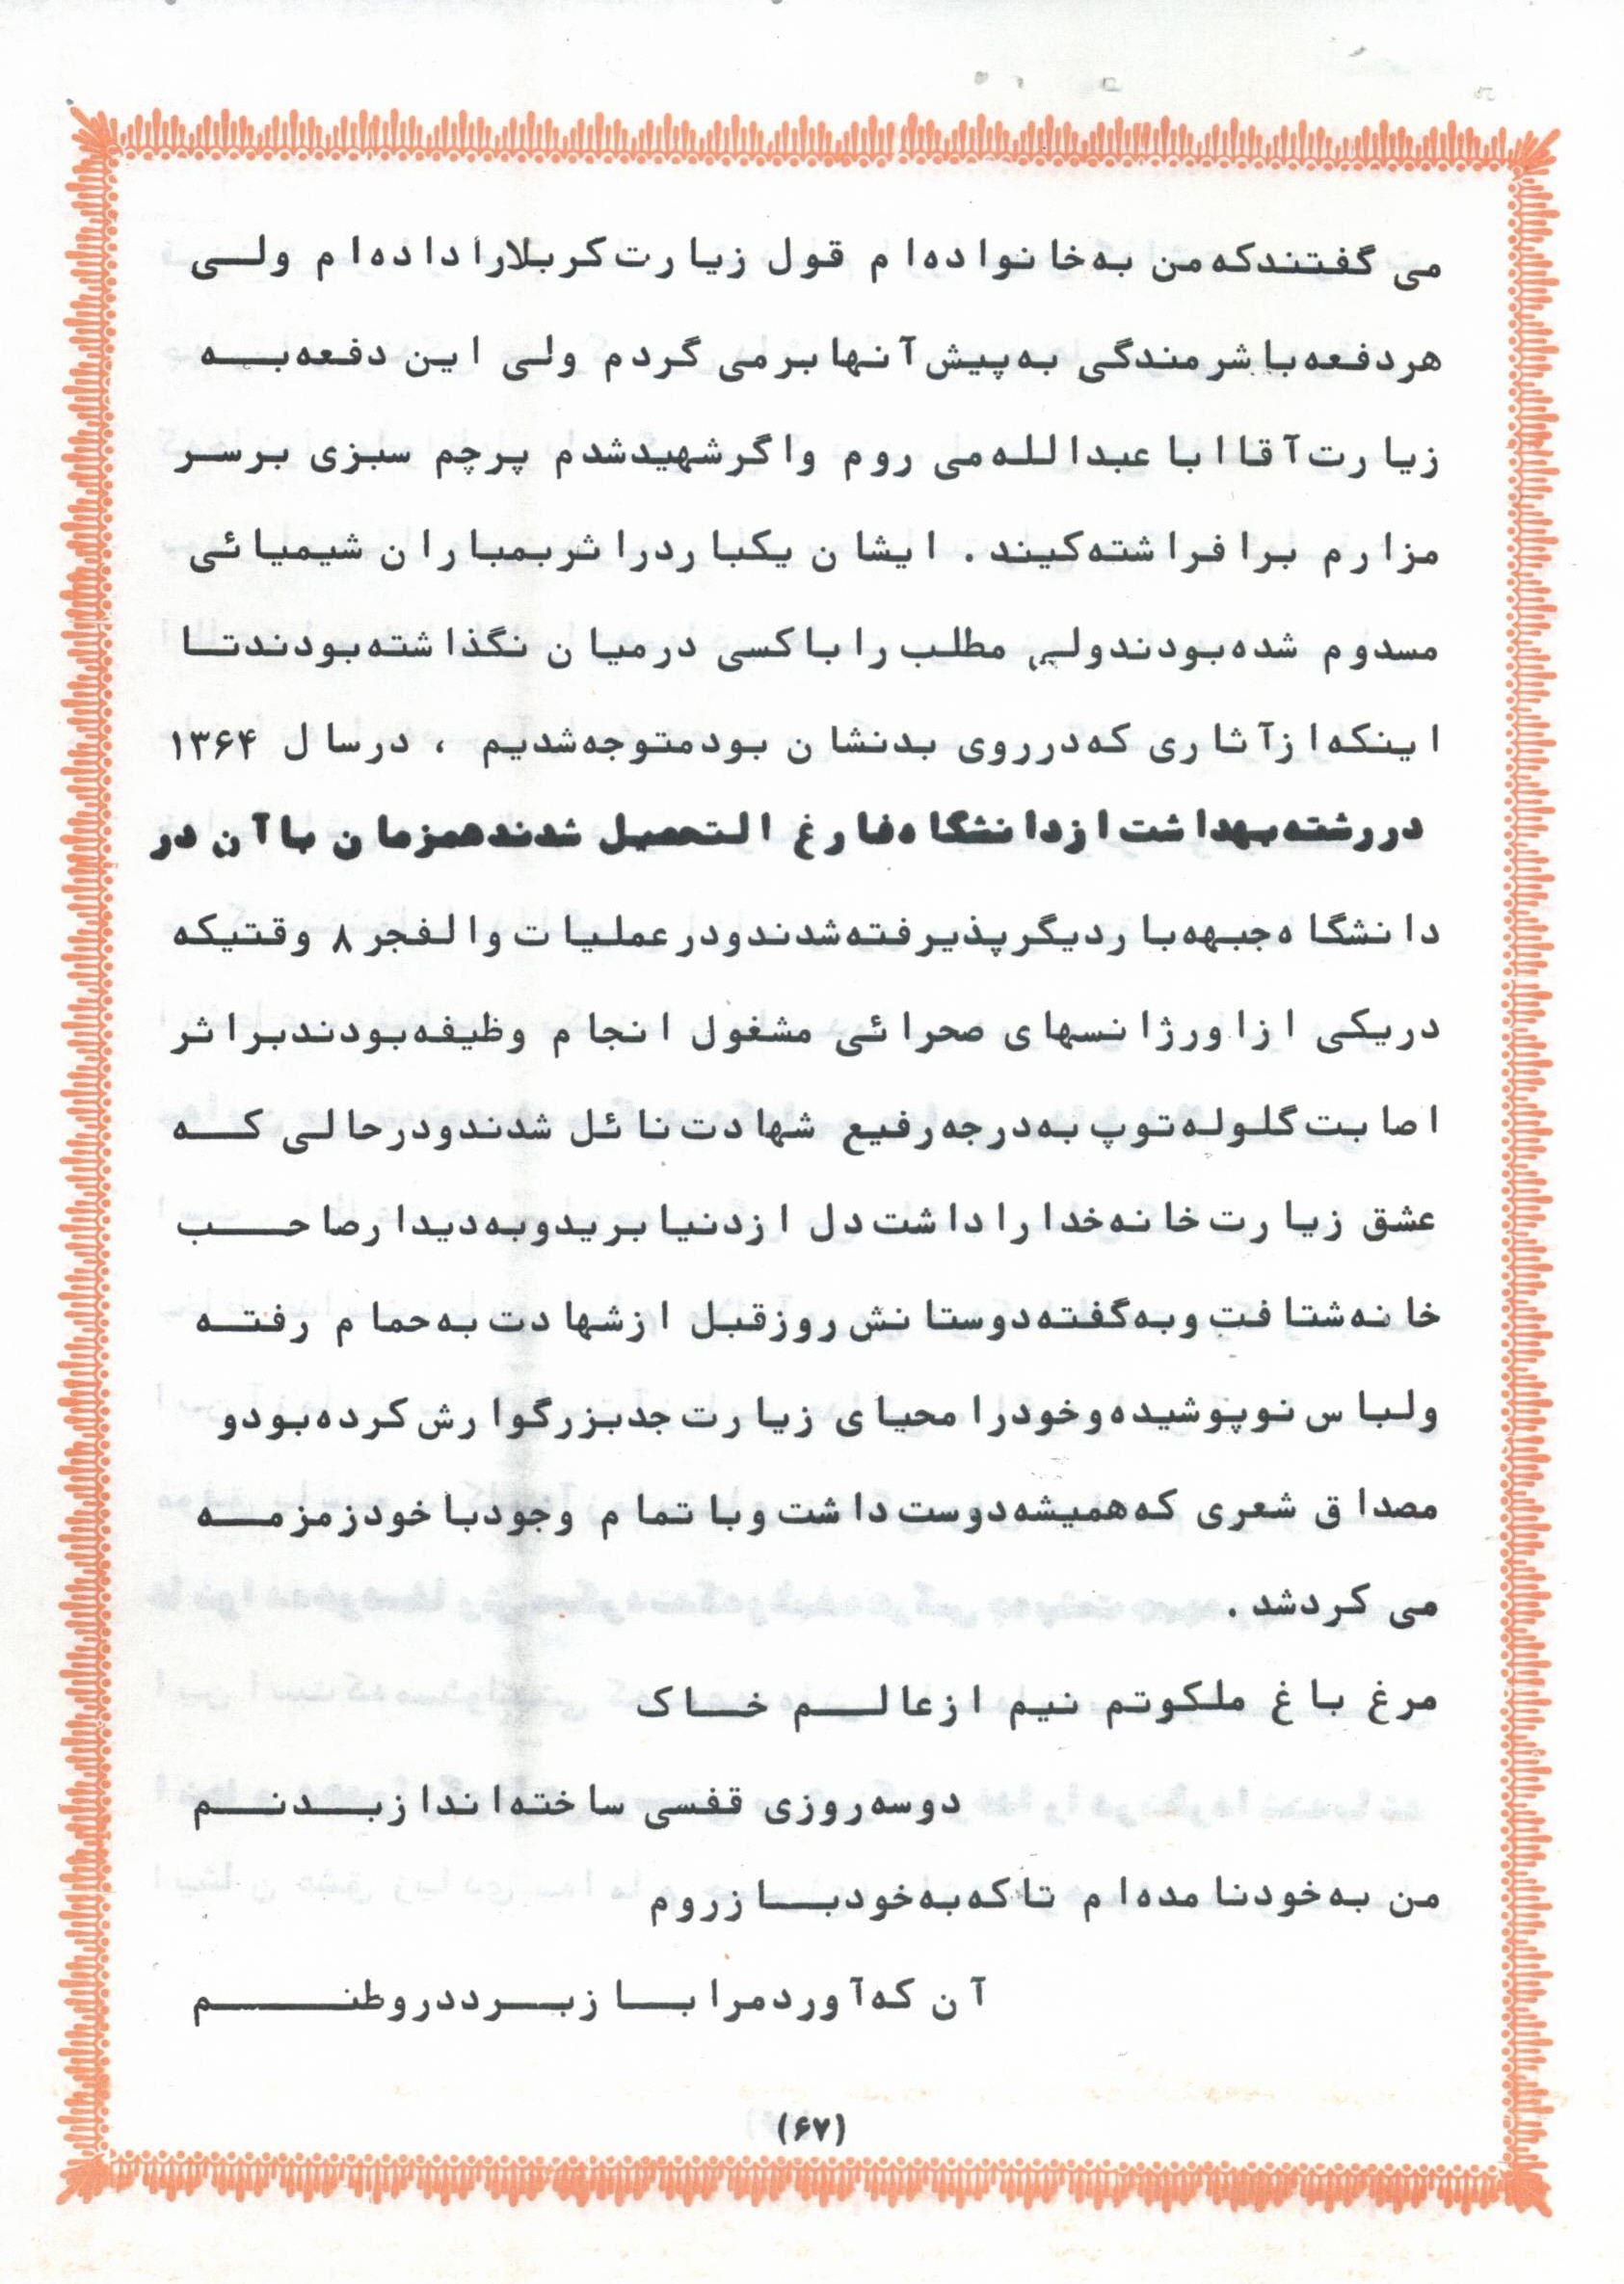 می گفتند که من به خانواده‌ام قول زیارت کربلا را داده‌ام ولی
هر دفعه با شرمندگی به پیش آنها برمی گردم ولی این دفعه به
زیارت آقا ابا عبدالله می روم و اگر شهید شدم پرچم سبزی بر سر
مزارم برافراشته کیند . ایشان یکبار در اثر بمباران شیمیائی
مسدوم شده بودند ولی مطلب را با کسی در میان نگذاشته بودند تا
اینکه از آثاری که در روی بدنشان بود متوجه شدیم ، در سال ۱۳۶۴
در رشته بهداشت از دانشگاه فارغ التحصیل شدند همزمان با آن در
دانشگاه جبهه بار دیگر پذیرفته شدند و در عملیات والفجر ۸ وقتیکه
در یکی از اورژانسهای صحرائی مشغول انجام وظیفه بودند بر اثر
اصابت گلوله توپ به درجه رفیع شهادت نائل شدند و در حالی که
عشق زیارت خانه خدا را داشت دل از دنیا برید و به دیدار صاحب
خانه شتافت و به گفته دوستانش روز قبل از شهادت به حمام رفته
و لباس نو پوشیده و خود را محیای زیارت جد بزرگوارش کرده بود و
مصداق شعری که همیشه دوست داشت و با تمام وجود با خود زمزمه
می کرد شد .
مرغ باغ ملکوتم نیم از عالم خاک
دو سه روزی قفسی ساخته‌اند از بدنم
من به خود نامده‌ام تا که به خود باز روم
آن که آورد مرا باز برد در وطنم
(۶۷)